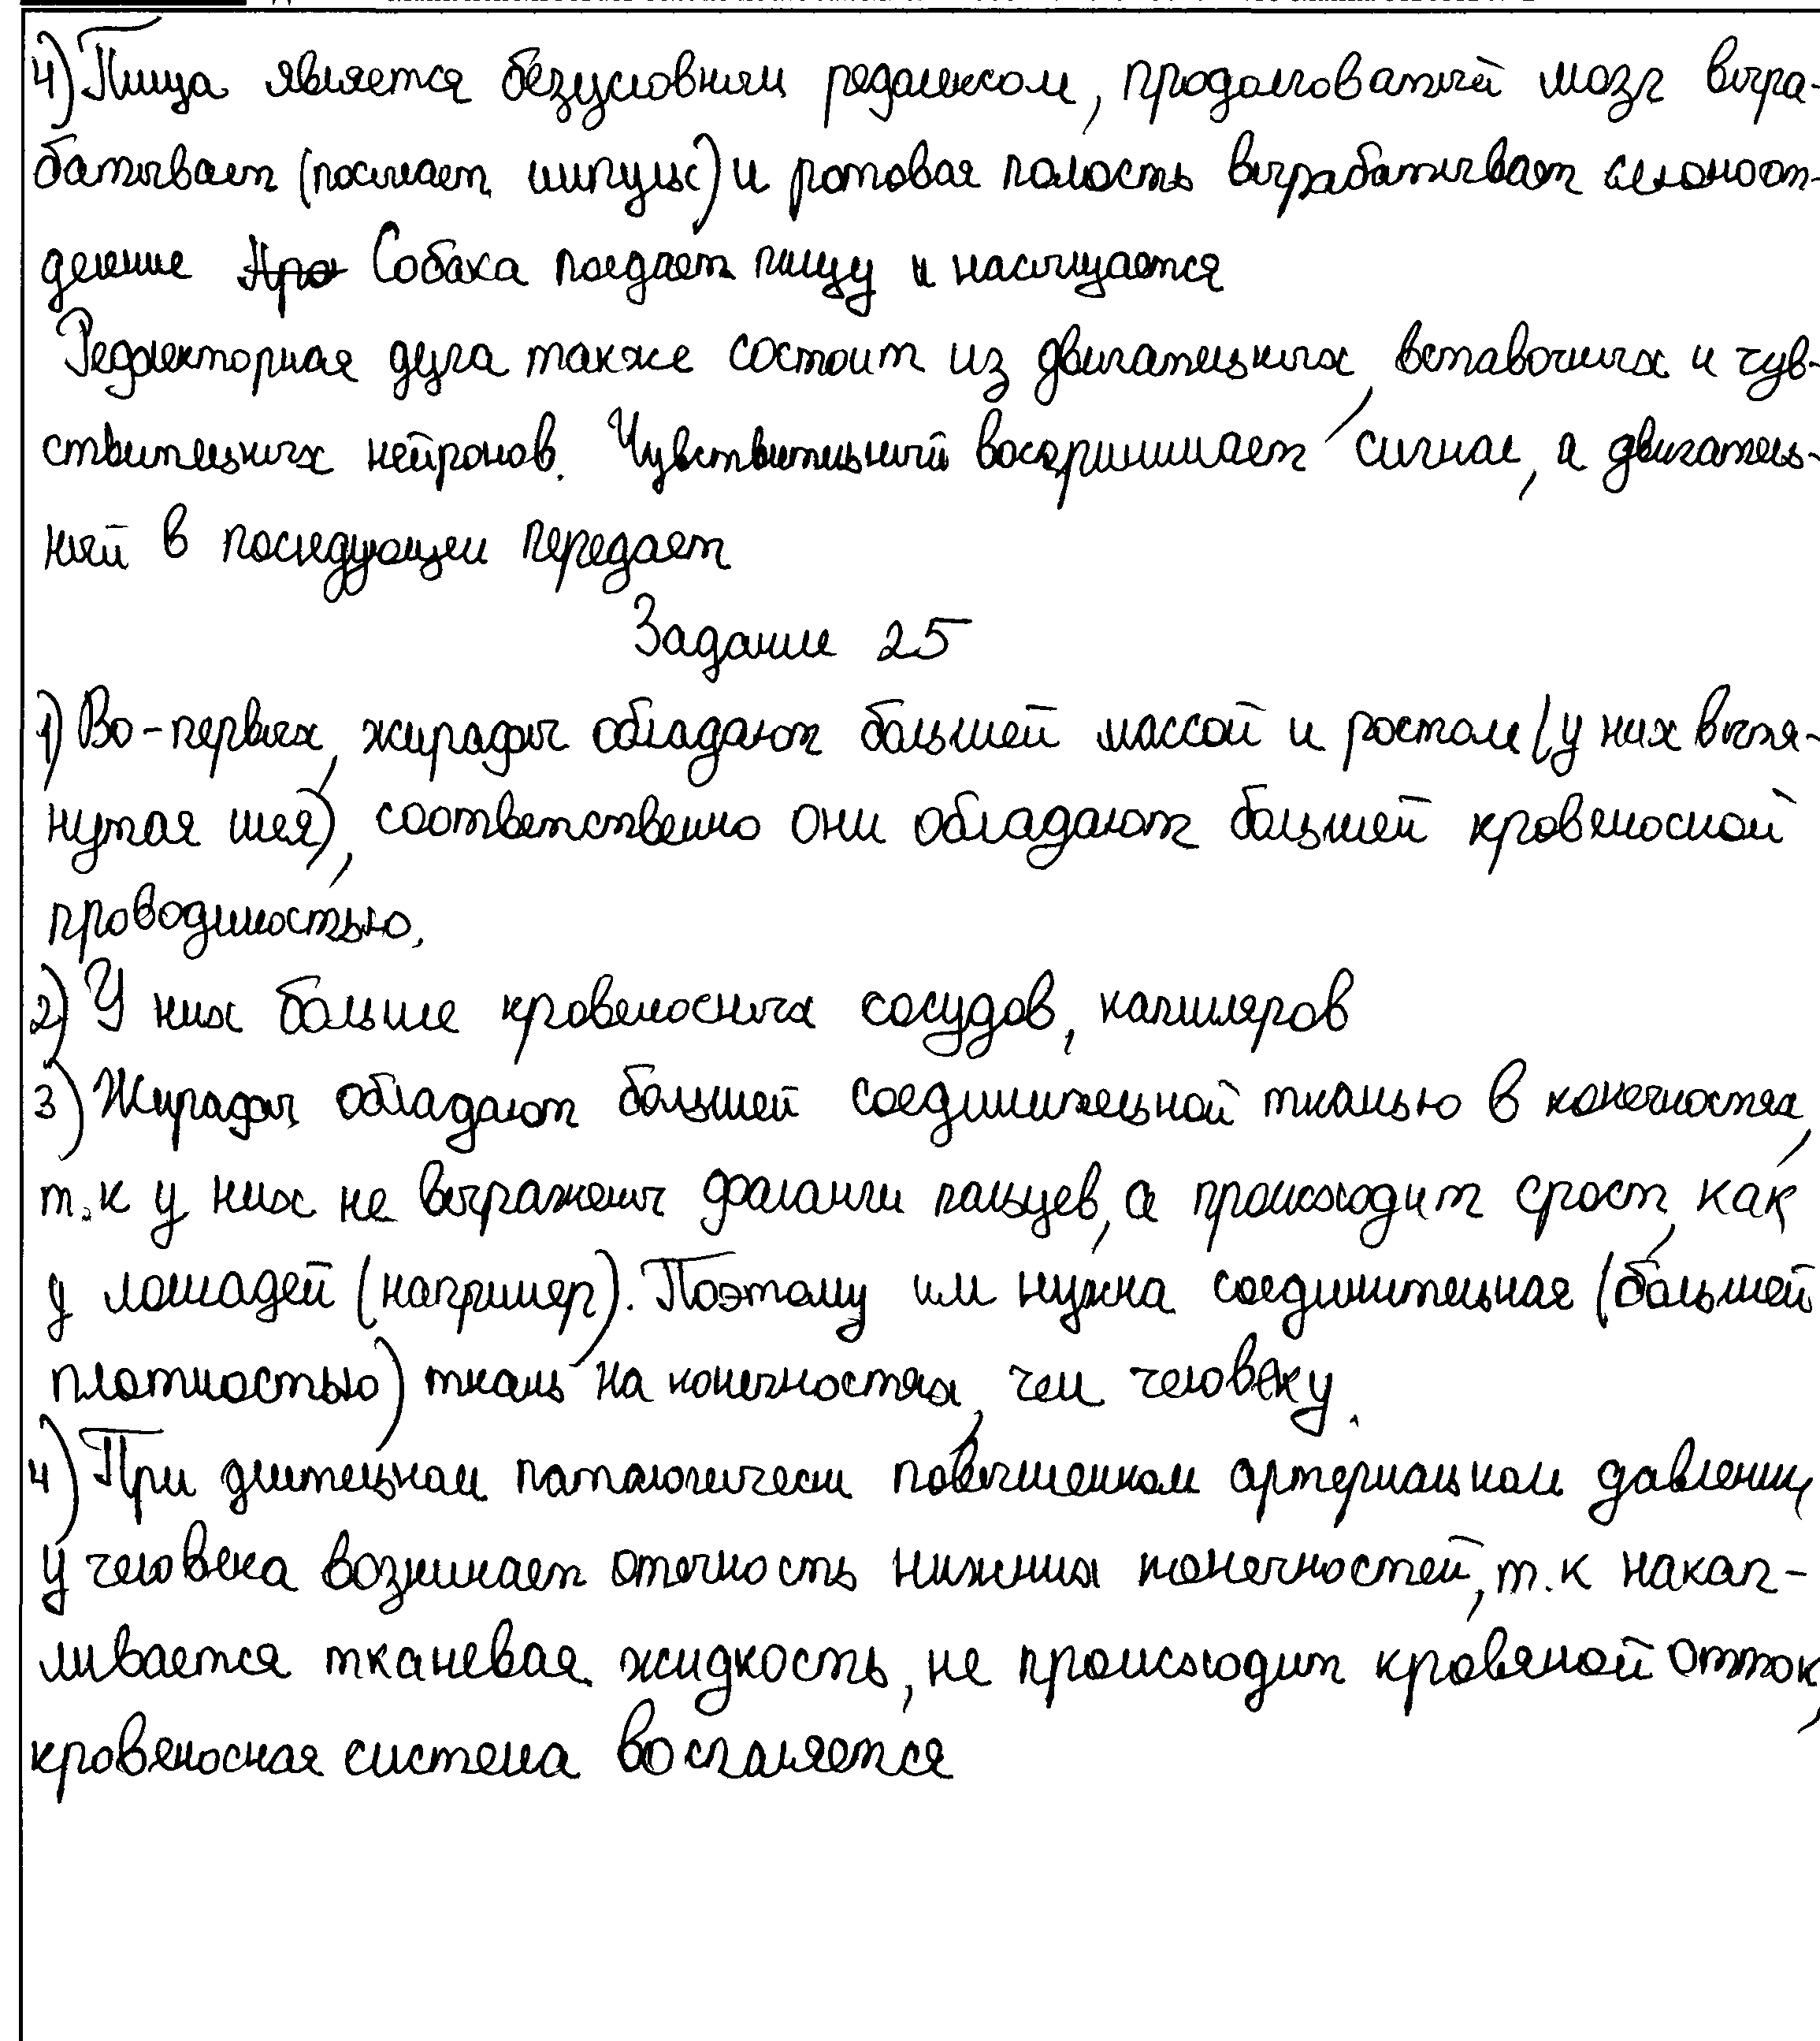 4) Пища является безусловным рефлексом, продолговатый мозг выра-
батывает (посылает импульс) и ротовая полость вырабатывает слюноот-
деление Про Собака поедает пищу и насыщается
Рефлекторная дуга также состоит из двигательных, вставочных и чув-
ствительных нейронов. Чувствительный воспринимает сигнал, а двигатель-
ный в последующем передает
Задание 25
1) Во-первых, жирафы обладают большей массой и ростом (у них вытя-
нутая шея), соответственно они обладают большей кровеносной
проводимостью.
2) У них больше кровеносных сосудов, капилляров
3) Жирафы обладают большей соединительной тканью в конечностях,
т.к у них не выражены фаланги пальцев, а происходит срост, как
у лошадей (например). Поэтому им нужна соединительная (большей
плотностью) ткань на конечностях, чем человеку.
4) При длительном патологически повышенном артериальном давлении
у человека возникает отечность нижних конечностей, т.к накап-
ливается тканевая жидкость, не происходит кровяной отток,
кровеносная система воспаляется